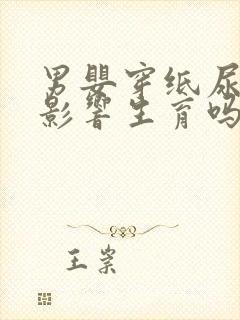 男婴穿纸尿
影响生育吗
王紫